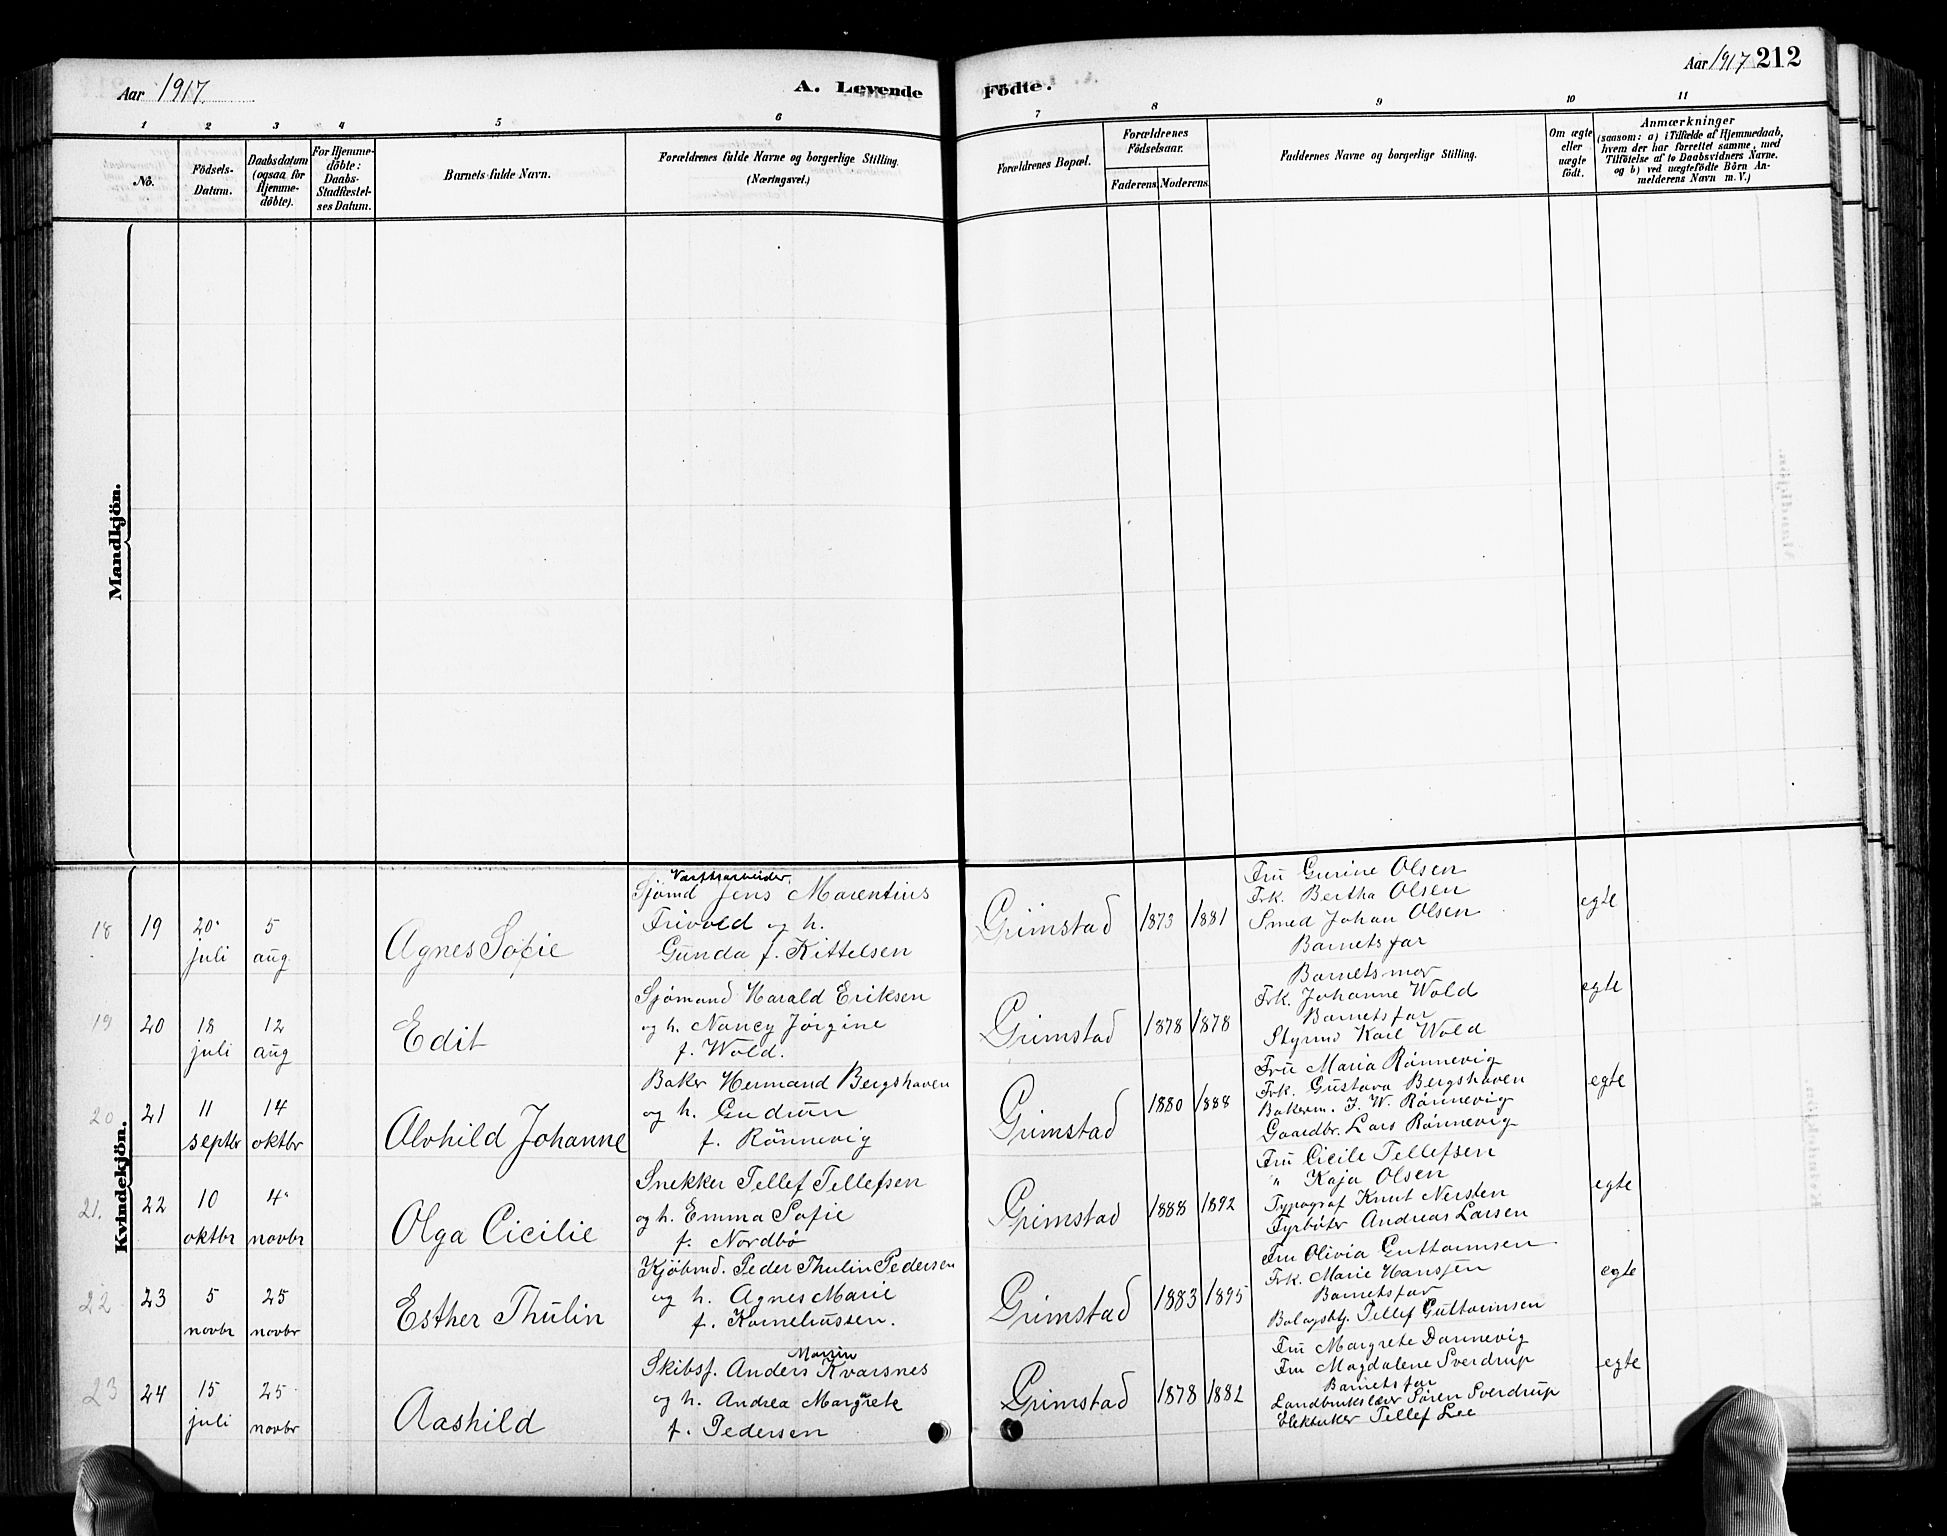 Aar 1917.
A. Levende
Födte.
Aar 1917 212
1 2 3 4 5 6 7 8 9 10 11
No.
Födsels-
Datum.
Daabsdatum
(ogsaa for
Hjemme-
döbte).
For Hjemme-
döbte:
Daabs-
Stadfæstel-
ses Datum.
Barnets fulde Navn.
Forældrenes fulde Navne og borgerlige Stilling.
(Næringsvei.)
Forældrenes Bopæl.
Forældrenes
Födselsaar.
Faderens. Moderens.
Faddernes Navne og borgerlige Stilling.
Om ægte
eller
uægte
födt.
Anmærkninger
(saasom: a) i Tilfælde af Hjemmedaab,
hvem der har forrettet samme, med
Tilföielse af to Daabsvidners Navne,
og b) ved uægtefödte Börn An-
melderens Navn m. V.)
Mandkjön.
Kvindekjön.
18 19 20 juli
5 aug
Agnes Sofie
Verftsarbeider
Sjömd Jens Marentius
Trivold og h.
Gunda f. Kittelsen
Grimstad 1873 1881
Fru Gurine Olsen
Frk. Bertha Olsen
Smed Johan Olsen
Barnets far
egte
19 20 18 juli
12 aug
Edit
Sjömand Harald Eriksen
og h. Nancy Jörgine
f. Wold.
Grimstad 1878 1878
Barnets mor
Frk. Johanne Wold
Barnets far
Styrmd Karl Wold
egte
20 21 11 septbr
14 oktbr
Alvhild Johanne
Baker Hermand Bergshaven
og h. Gudrun
f. Rönnevig
Grimstad 1880 1888
Fru Maria Rönnevig
Frk. Gustava Bergshaven
Bakerm. J. W. Rönnevig
Gaardbr. Lars Rönnevig
egte
21. 22 10 oktbr
4 novbr
Olga Cicilie
Snekker Tellef Tellefsen
og h. Emma Sofie
f. Nordbö
Grimstad 1888 1892
Fru Cicile Tellefsen
" Kaja Olsen
Typograf Knut Nersten
Fyrböter Andreas Larsen
egte
22 23 5 novbr
25 novbr
Esther Thulin
Kjöbmd. Peder Thulin Pedersen
og h. Agnes Marie
f. Korneliussen.
Grimstad 1883 1895
Fru Olivia Guttormsen
Frk. Marie Hansen
Barnets far
Tellef Guttormsen
egte
23 24 15 juli
25 novbr
Aashild
Martin
Skibsf. Anders Kvarsnes
og h. Andrea Margrete
f. Pedersen
Grimstad 1878 1882
Fru Margrete Dannevig
Fru Magdalene Sverdrup
Barnets far
Landbrukslær Sören Sverdrup
Tellef Lee
egte